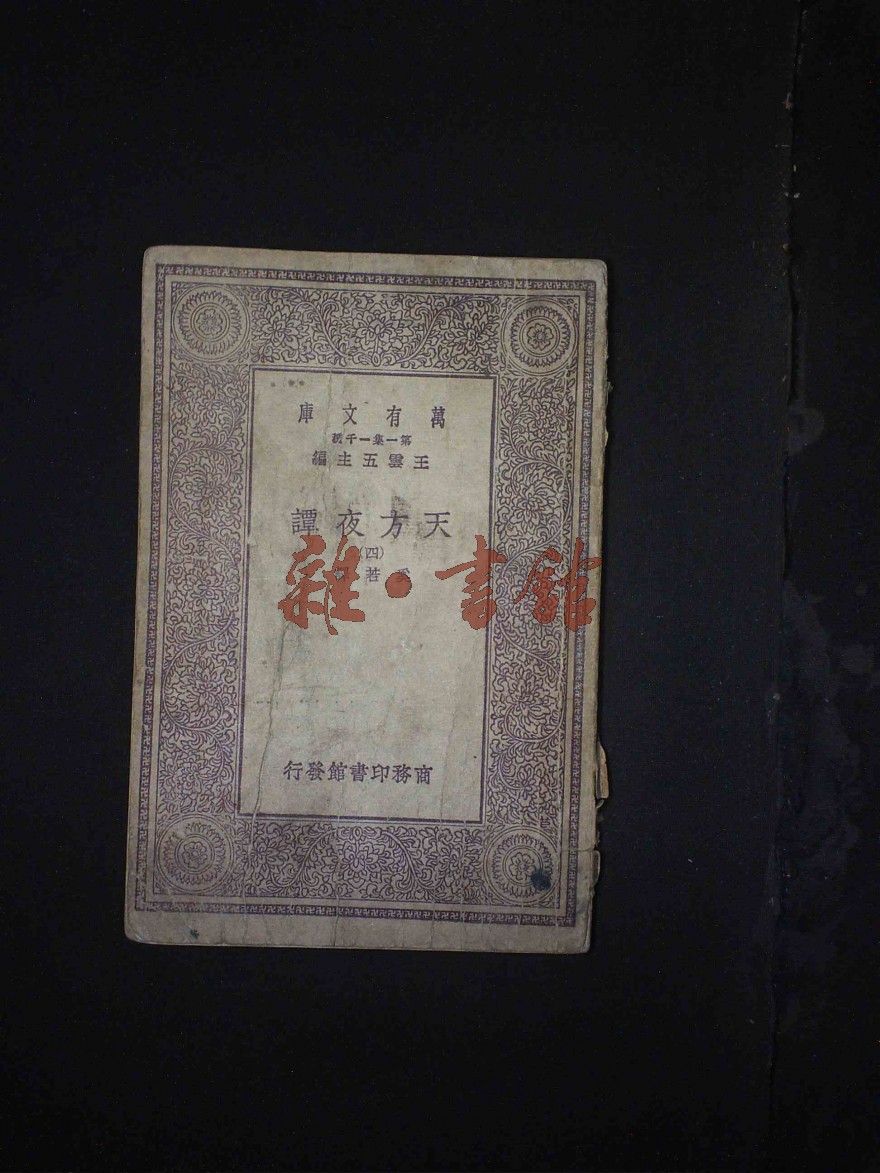 萬有文庫
第一集一千種
王雲五主編
天方夜譚
(四)
奚若
雜·書館
商務印書館發行